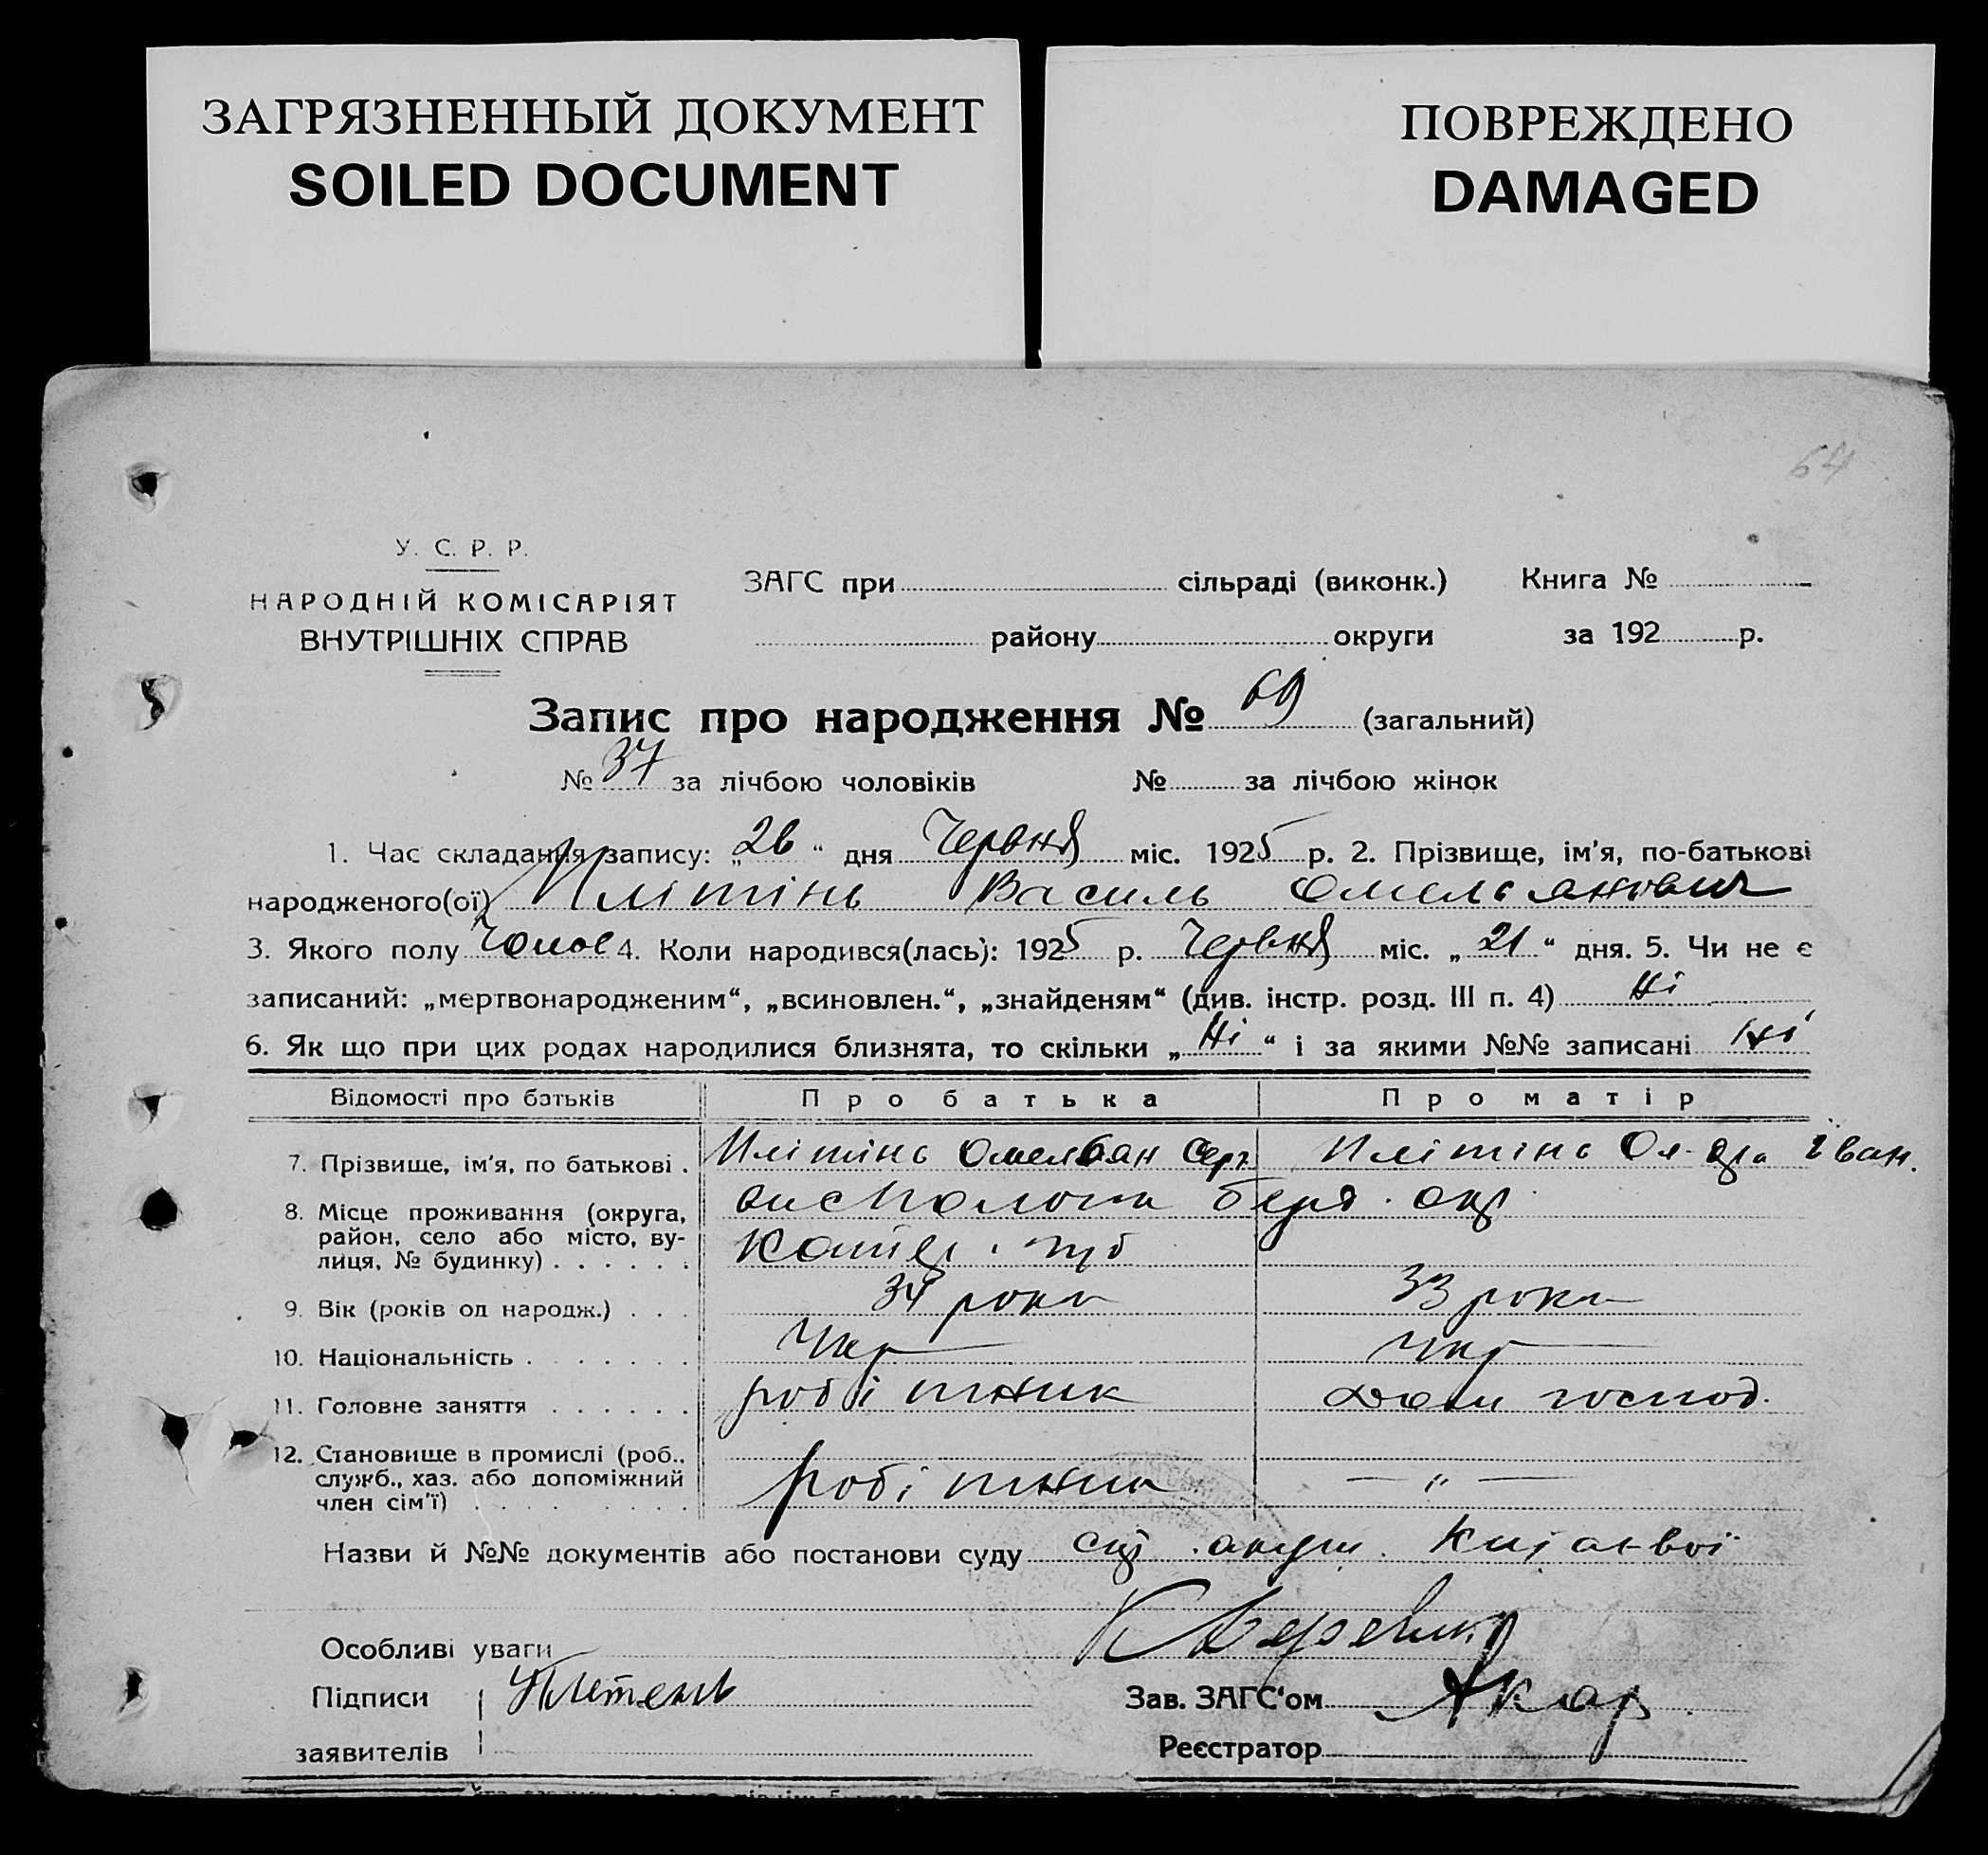 ЗАГРЯЗНЕННЫЙ ДОКУМЕНТ
SOILED DOCUMENT
ПОВРЕЖДЕНО
DAMAGED
64
У. С. Р. Р.
НАРОДНІЙ КОМІСАРІЯТ
ВНУТРІШНІХ СПРАВ
ЗАГС при сільраді (виконк.) Книга №
району округи за 192 р.
Запис про народження № 69 (загальний)
№ 37 за лічбою чоловіків № за лічбою жінок
1. Час складання запису: „26“ дня Червня міс. 1925 р. 2. Прізвище, ім'я, по-батькові
народженого(ої) Плітінь Василь Омельянович
3. Якого полу Чолов 4. Коли народився(лась): 1925 р. Червня міс. „21“ дня. 5. Чи не є
записаний: „мертвонародженим“, „всиновлен.“, „знайденям“ (див. інстр. розд. III п. 4) Ні
6. Як що при цих родах народилися близнята, то скільки „Ні“ і за якими №№ записані Ні
Відомості про батьків Про батька Про матір
7. Прізвище, ім'я, по батькові . Плітінь Омельян Серг Плітінь Ол-дра Іван.
8. Місце проживання (округа,
район, село або місто, ву-
лиця, № будинку) . . . . . .
9. Вік (років од народж.) . . . 34 роки 33 роки
10. Національність . . . . . . . Укр Укр
11. Головне заняття . . . . . . робітник Дом господ.
12. Становище в промислі (роб.,
служб., хаз. або допоміжний
член сім'ї) . . . . . . . . . робітник — „ —
Назви й №№ документів або постанови суду акуш.
Особливі уваги
Підписи Плетень Зав. ЗАГС'ом
заявителів Реєстратор